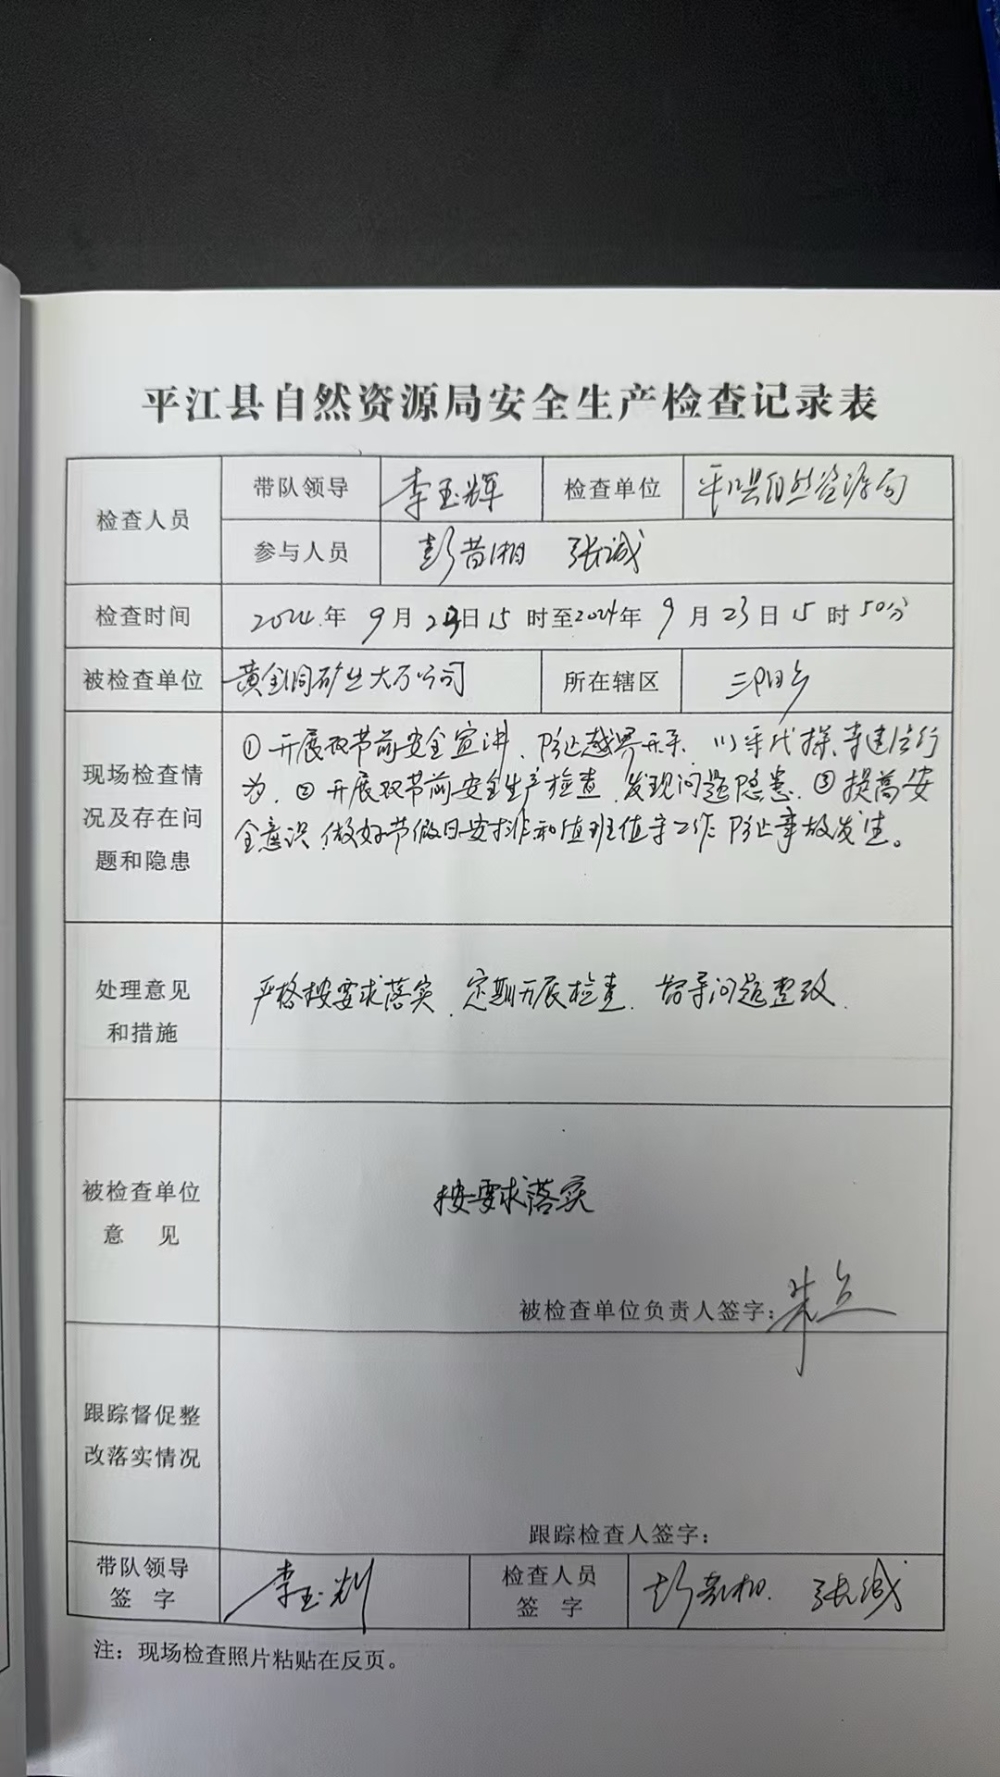 平江县自然资源局安全生产检查记录表
检查人员 带队领导 李玉辉 检查单位 平江县自然资源局
参与人员 彭 湘 张诚
检查时间 2024.年 9月23日15时至2024年 9月23日15时50分
被检查单位 黄金洞矿业大万公司 所在辖区 三阳乡
现场检查情况及存在问题和隐患
①开展双节前安全宣讲,防止越界开采、以采代探等违法行
为.②开展双节前安全生产检查,发现问题隐患.③提高安
全意识,做好节假日安排和值班值守工作 防止事故发生。
处理意见和措施
严格按要求落实,定期开展检查. 指导问题整改.
被检查单位意 见
按要求落实
被检查单位负责人签字:
跟踪督促整改落实情况
跟踪检查人签字:
带队领导签 字 李玉辉 检查人员签 字 彭 湘. 张诚
注:现场检查照片粘贴在反页。